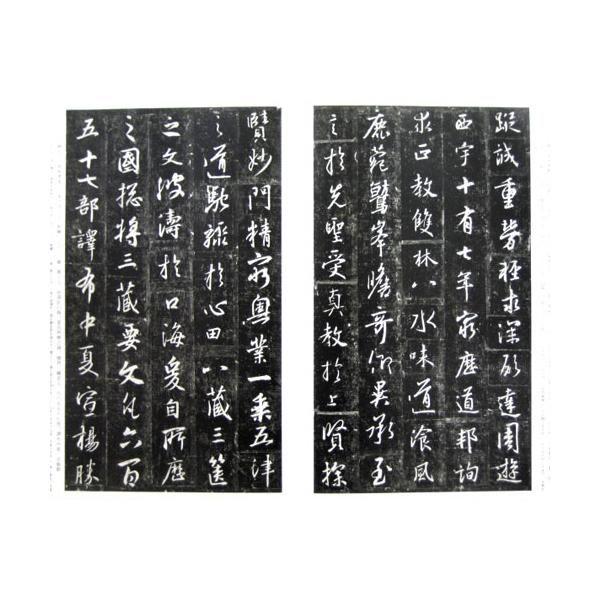 蹤誠重勞輕求深願達周遊
西宇十有七年窮歷道邦詢
求正教雙林八水味道飡風
鹿菀鷲峯瞻奇仰異承至
言於先聖受真教於上賢探
賾妙門精窮奧業一乘五律
之道馳驟於心田八藏三篋
之文波濤於口海爰自所歷
之國總將三藏要文凡六百
五十七部譯布中夏宣揚勝